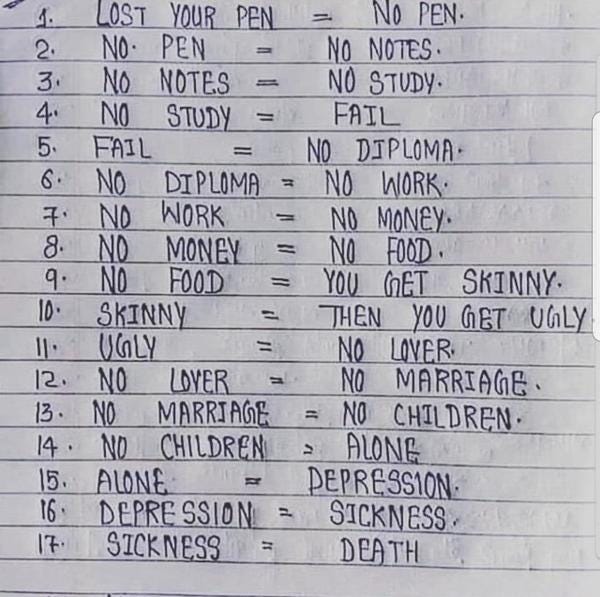 1. LOST YOUR PEN = NO PEN.
2. NO. PEN = NO NOTES.
3. NO NOTES = NO STUDY.
4. NO STUDY = FAIL
5. FAIL = NO DIPLOMA.
6. NO DIPLOMA = NO WORK.
7. NO WORK = NO MONEY.
8. NO MONEY = NO FOOD.
9. NO FOOD = YOU GET SKINNY.
10. SKINNY = THEN YOU GET UGLY
11. UGLY = NO LOVER.
12. NO LOVER = NO MARRIAGE.
13. NO MARRIAGE = NO CHILDREN.
14. NO CHILDREN = ALONE
15. ALONE = DEPRESSION.
16. DEPRESSION = SICKNESS.
17. SICKNESS = DEATH